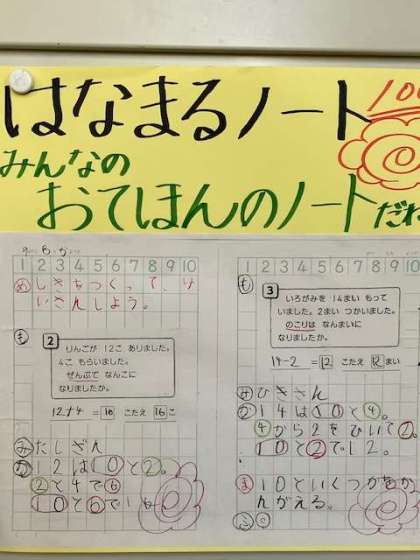 はなまるノート
100
みんなの
おてほんのノートだ
1 2 3 4 5 6 7 8 9 10
め しきをつくって、け
いさんしよう。
も 2
りんごが 12こ ありました。
4こ もらいました。
ぜんぶで なんこに
なりましたか。
12+4 = 16 こたえ 16こ
み たしざん
か 12は10と2。
2と4で6
10と6で
1 2 3 4 5 6 7 8 9 10
も 3
いろがみを 14まい もって
いました。2まい つかいました。
のこりは なんまいに
なりましたか。
14-2 = 12 こたえ 12 まい
み ひきざん
か 14は10と4。
4から2をひいて2。
10と2で12。
ま 10といくつかをか
んがえる。